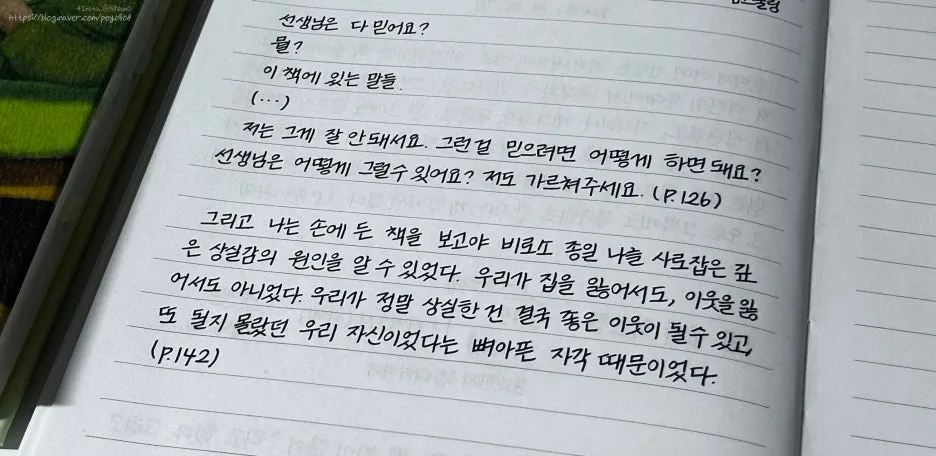 https://blog.naver.com/pey0508
선생님은 다 믿어요?
뭘?
이 책에 있는 말들.
(...)
저는 그게 잘 안돼서요. 그런걸 믿으려면 어떻게 하면 돼요?
선생님은 어떻게 그럴수 있어요? 저도 가르쳐주세요. (P.126)
그리고 나는 손에 든 책을 보고야 비로소 종일 나를 사로잡은 깊
은 상실감의 원인을 알 수 있었다. 우리가 집을 잃어서도, 이웃을 잃
어서도 아니었다. 우리가 정말 상실한 건 결국 좋은 이웃이 될 수 있고,
또 될지 몰랐던 우리 자신이었다는 뼈아픈 자각 때문이었다.
(P.142)